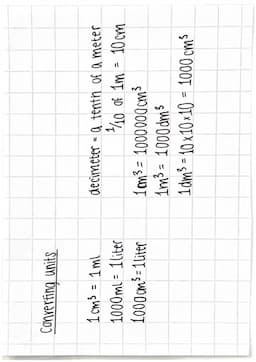 Converting units
1 cm³ = 1 ml
1000 ml = 1 liter
1000 cm³ = 1 liter
decimeter = a tenth of a meter
1/10 of 1m = 10 cm
1 m³ = 1000000 cm³
1 m³ = 1000 dm³
1 dm³ = 10 x 10 x 10 = 1000 cm³